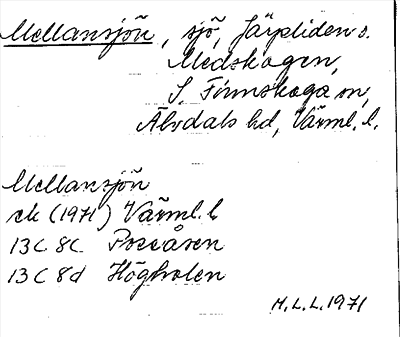 Mellansjön, sjö, Järpliden s.
Medskogen,
S. Finnskoga sn,
Älvdals hd, Värml. l.
Mellansjön
ek (1971) Värml. l
13C 8c Possåsen
13C 8d Högholen
H.L.L. 1971